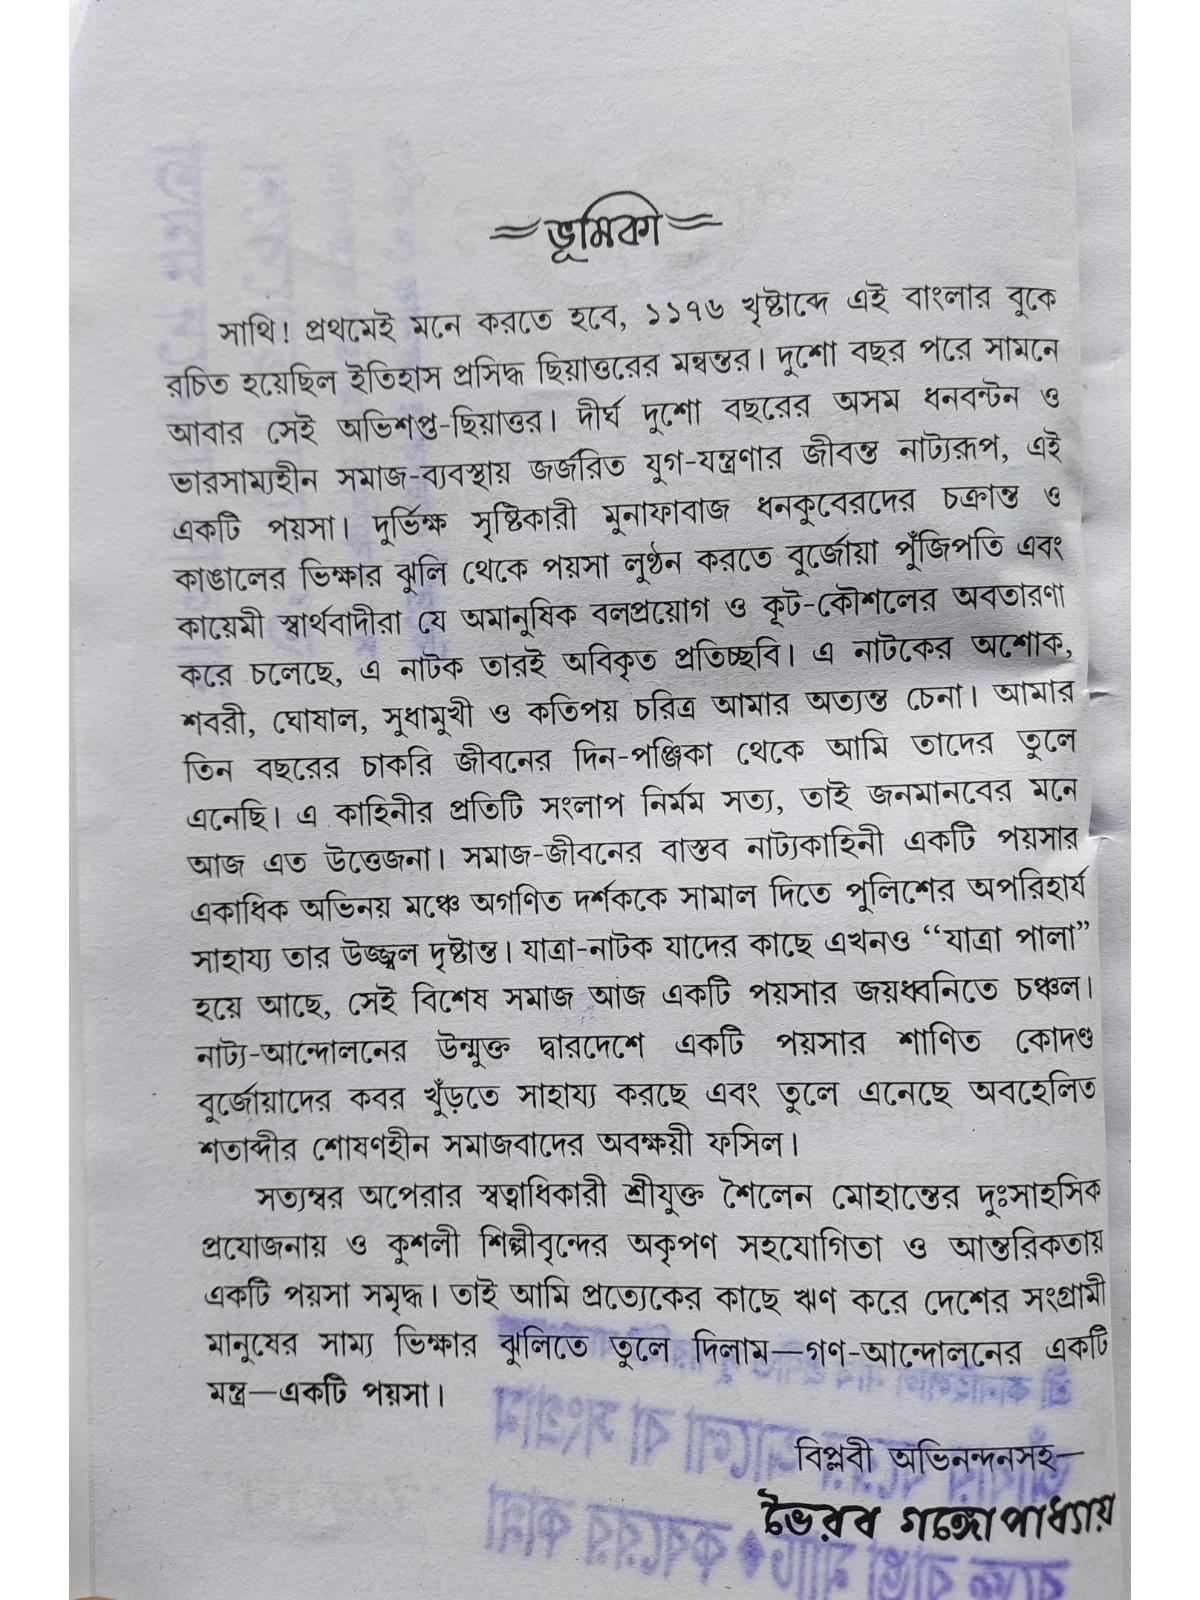 ভূমিকা
সাথি! প্রথমেই মনে করতে হবে, ১১৭৬ খৃষ্টাব্দে এই বাংলার বুকে
রচিত হয়েছিল ইতিহাস প্রসিদ্ধ ছিয়াত্তরের মন্বন্তর। দুশো বছর পরে সামনে
আবার সেই অভিশপ্ত-ছিয়াত্তর। দীর্ঘ দুশো বছরের অসম ধনবন্টন ও
ভারসাম্যহীন সমাজ-ব্যবস্থায় জর্জরিত যুগ-যন্ত্রণার জীবন্ত নাট্যরূপ, এই
একটি পয়সা। দুর্ভিক্ষ সৃষ্টিকারী মুনাফাবাজ ধনকুবেরদের চক্রান্ত ও
কাঙালের ভিক্ষার ঝুলি থেকে পয়সা লুণ্ঠন করতে বুর্জোয়া পুঁজিপতি এবং
কায়েমী স্বার্থবাদীরা যে অমানুষিক বলপ্রয়োগ ও কূট-কৌশলের অবতারণা
করে চলেছে, এ নাটক তারই অবিকৃত প্রতিচ্ছবি। এ নাটকের অশোক,
শবরী, ঘোষাল, সুধামুখী ও কতিপয় চরিত্র আমার অত্যন্ত চেনা। আমার
তিন বছরের চাকরি জীবনের দিন-পঞ্জিকা থেকে আমি তাদের তুলে
এনেছি। এ কাহিনীর প্রতিটি সংলাপ নির্মম সত্য, তাই জনমানবের মনে
আজ এত উত্তেজনা। সমাজ-জীবনের বাস্তব নাট্যকাহিনী একটি পয়সার
একাধিক অভিনয় মঞ্চে অগণিত দর্শককে সামাল দিতে পুলিশের অপরিহার্য
সাহায্য তার উজ্জ্বল দৃষ্টান্ত। যাত্রা-নাটক যাদের কাছে এখনও “যাত্রা পালা”
হয়ে আছে, সেই বিশেষ সমাজ আজ একটি পয়সার জয়ধ্বনিতে চঞ্চল।
নাট্য-আন্দোলনের উন্মুক্ত দ্বারদেশে একটি পয়সার শাণিত কোদণ্ড
বুর্জোয়াদের কবর খুঁড়তে সাহায্য করছে এবং তুলে এনেছে অবহেলিত
শতাব্দীর শোষণহীন সমাজবাদের অবক্ষয়ী ফসিল।
সত্যম্বর অপেরার স্বত্বাধিকারী শ্রীযুক্ত শৈলেন মোহান্তের দুঃসাহসিক
প্রযোজনায় ও কুশলী শিল্পীবৃন্দের অকৃপণ সহযোগিতা ও আন্তরিকতায়
একটি পয়সা সমৃদ্ধ। তাই আমি প্রত্যেকের কাছে ঋণ করে দেশের সংগ্রামী
মানুষের সাম্য ভিক্ষার ঝুলিতে তুলে দিলাম—গণ-আন্দোলনের একটি
মন্ত্র—একটি পয়সা।
বিপ্লবী অভিনন্দনসহ—
ভৈরব গঙ্গোপাধ্যায়